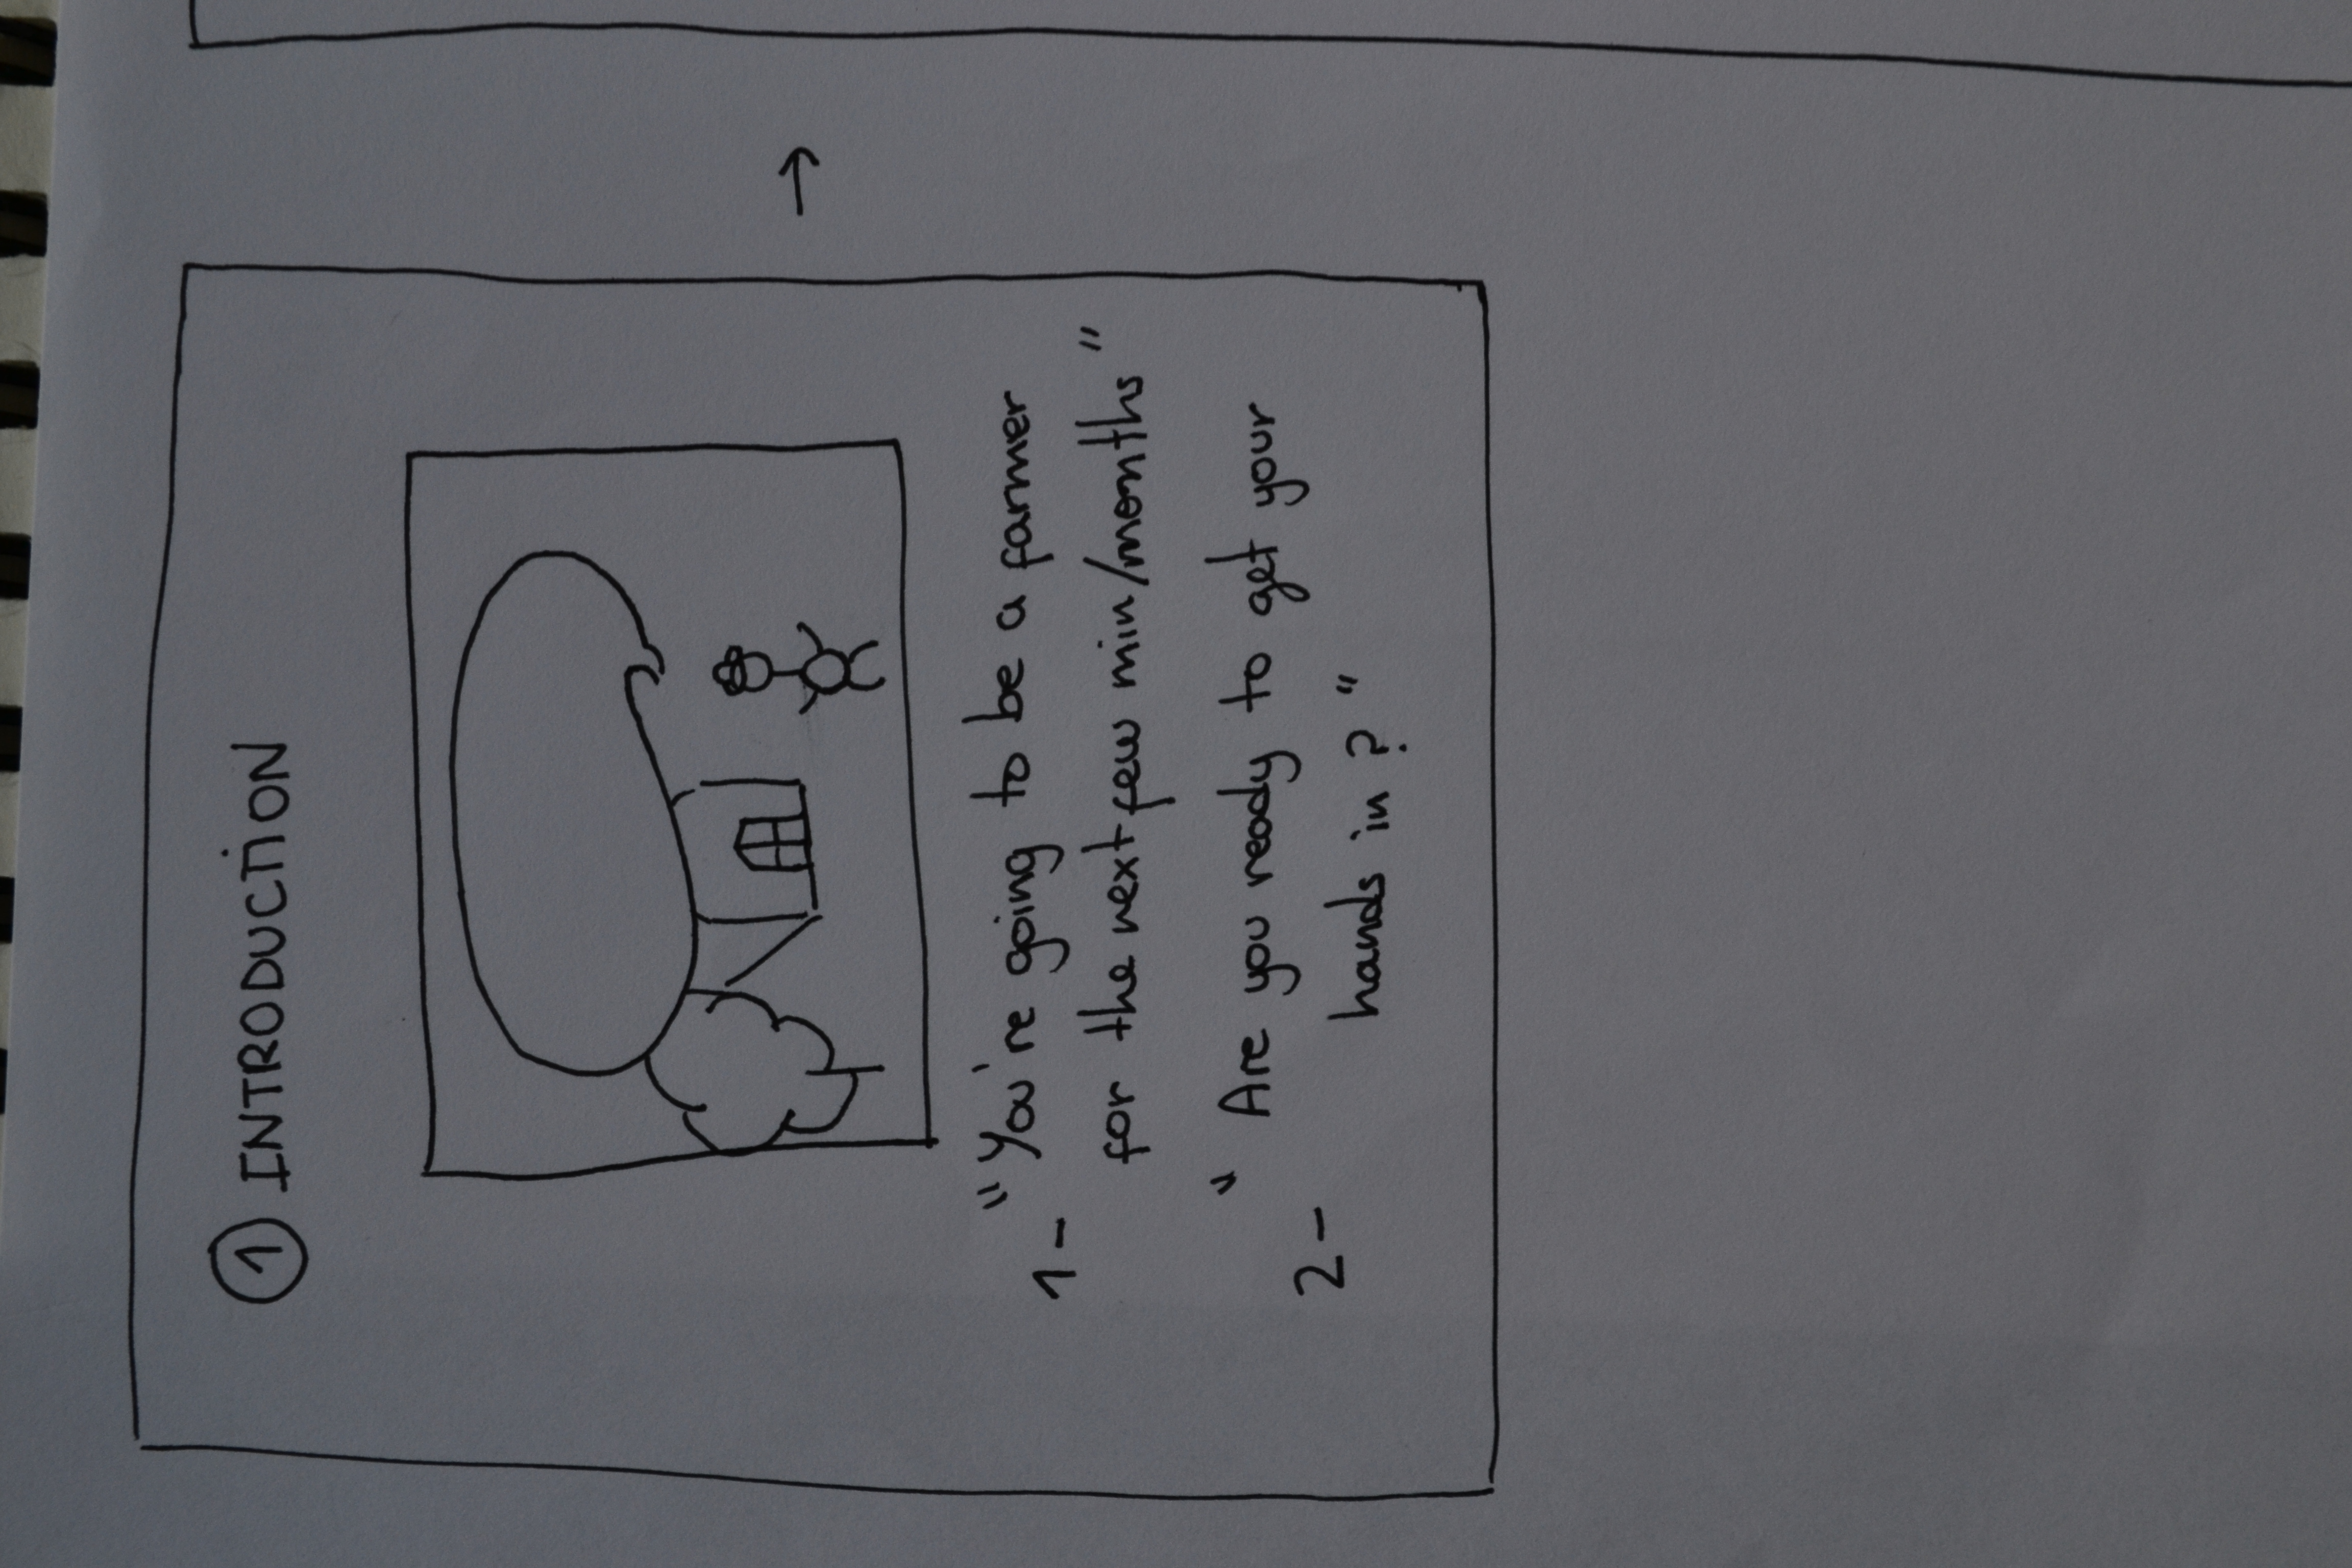 ① INTRODUCTION
1- "You're going to be a farmer
for the next few min/months"
2- "Are you ready to get your
hands in?"